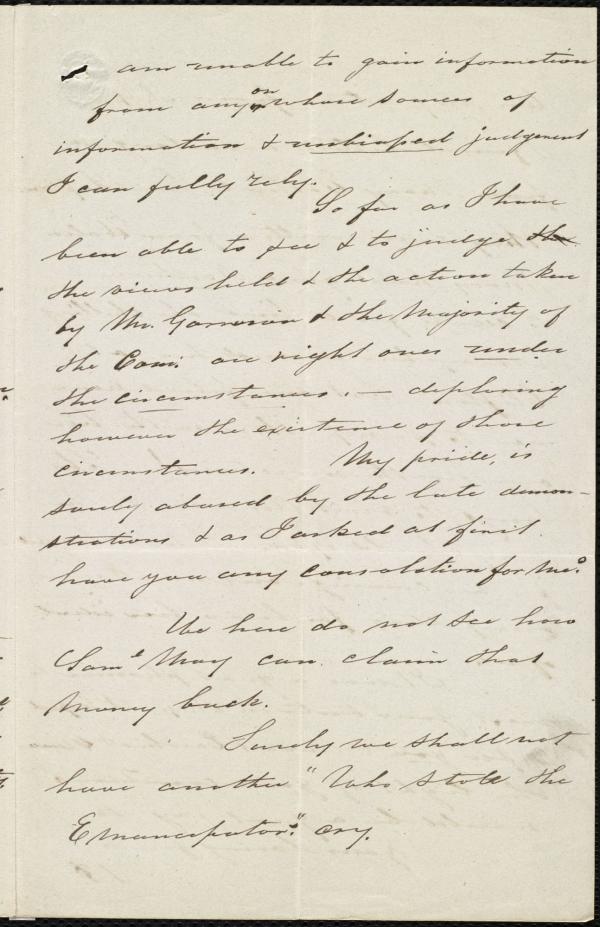 am unable to gain information
from any on whose sources of
information & unbiassed judgement
I can fully rely.
So far as I have
been able to see & to judge the
the views held & the action taken
by Mr. Garrison & the Majority of
the Com: are right ones under
the circumstances. — deploring
however the existence of those
circumstances. My pride, is
sorely abased by the late demon-
strations & as I asked at first
have you any consolation for me?
We here do not see how
Saml May can claim that
Money back.
Surely we shall not
have another "Who stole the
Emancipator?" cry.